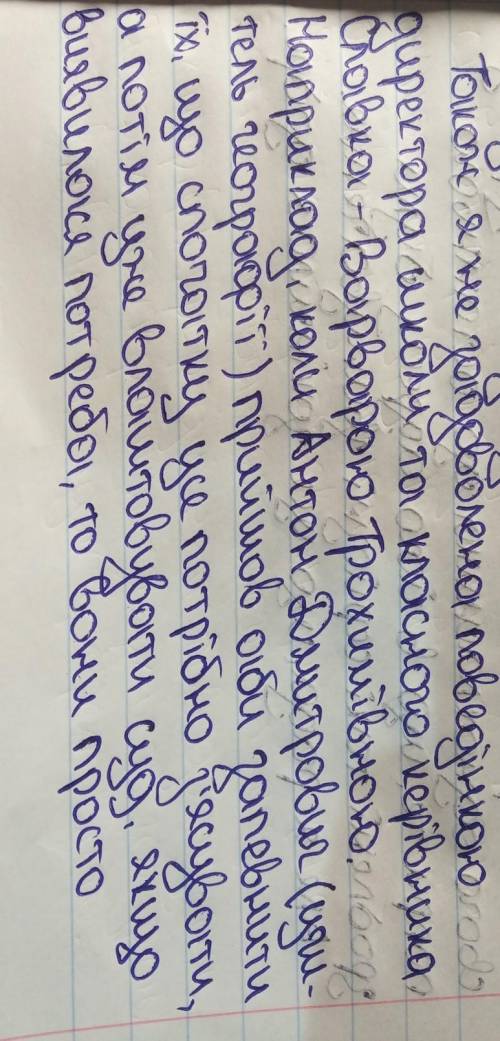 Також я не задоволена поведінкою
директора школи та класного керівника
Славка - Варварою Трохимівною.
Наприклад, коли Антон Дмитрович (учи-
тель географії) прийшов аби запевнити
їх, що спочатку усе потрібно з'ясувати,
а потім уже влаштовувати суд, якщо
виявилося потреба, то вони просто